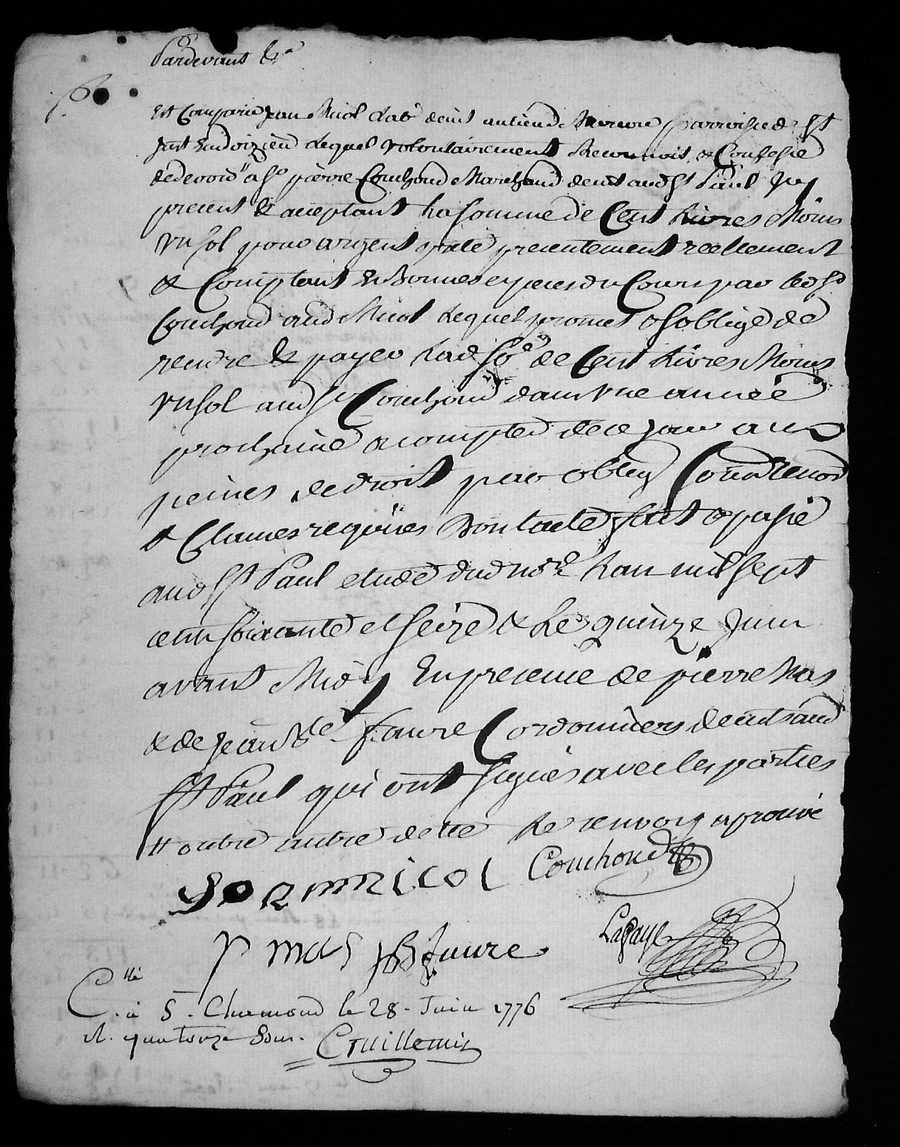 Pardevant &c
Est Comparu Jean Nicol Lab.r demt au lieu de parroisse de St
just En doizieu Lequel volontairement Reconnoit & Confesse
de devoir a S.r pierre Couchoud Marchand demt aud St Paul Icy
present & acceptant La somme de Cent Livres Moins
un sol pour argent preté presentement reellement
& Comptant En Bonnes especes du Cours par led Sr
Couchoud aud Nicol Lequel promet & soblige de
rendre & payer Lad So.e de Cent Livres Moins
un sol aud Sr Couchoud dans une année
prochaine a compter de ce jour aux
peines de droit par oblig
& Clauses requises Dont acte fait & passé
aud St Paul etude dud no.re Lan mil sept
cent soixante et seize & Le quinze Juin
avant Midy En presence de pierre Mas
& de Jean B.te faure Cordonniers demts aud
St Paul qui ont signés avec les parties
& outre autre dette Le renvoy aprouvé
Couchoud
P mas JB faure
Lafaye
C.tllé
à S. Chamond le 28. Juin 1776
R. quatorze sous.